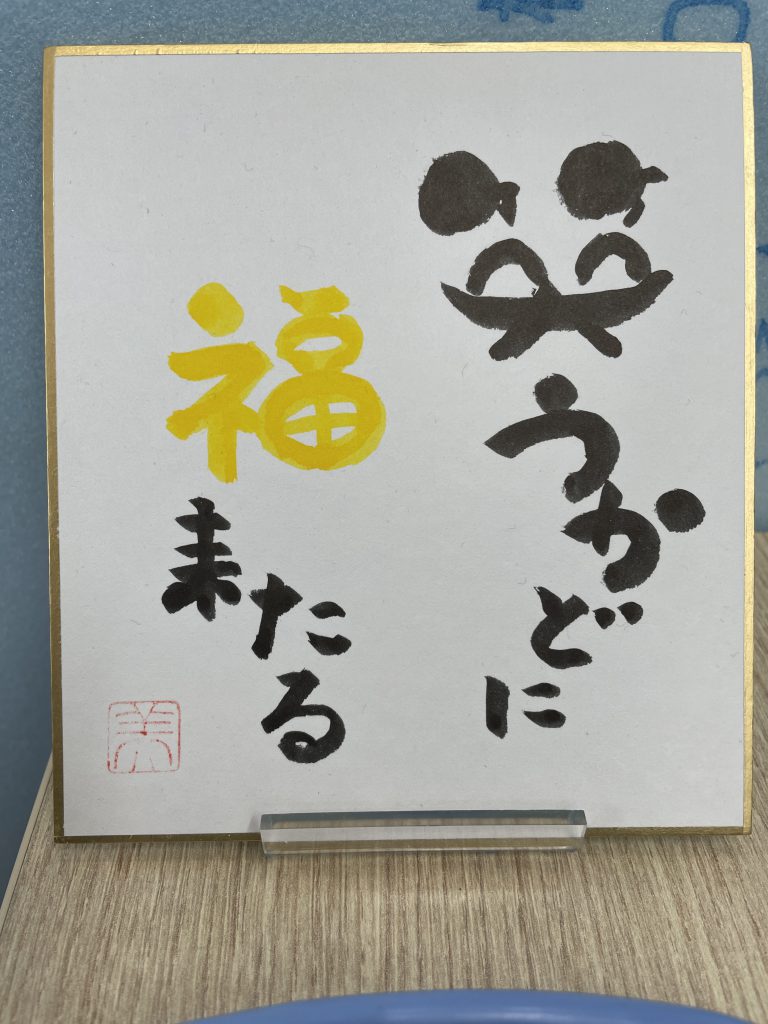 笑うかどに
福来たる
美